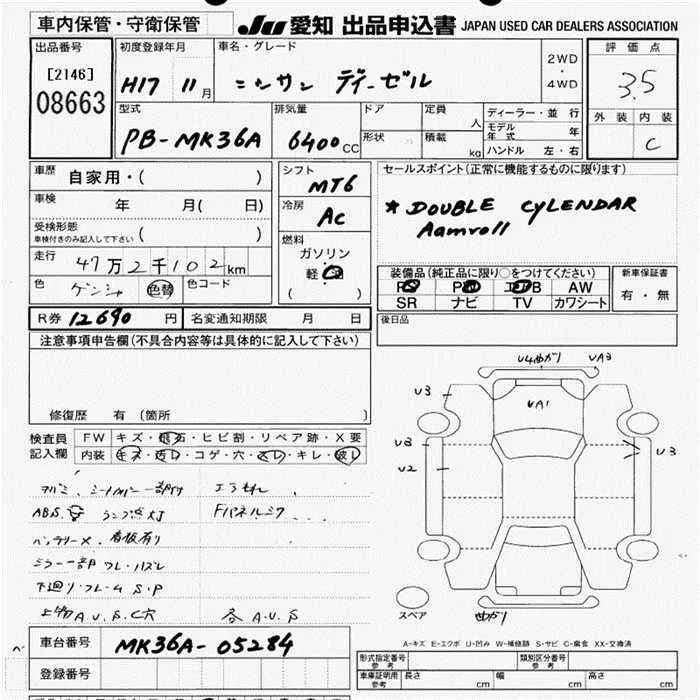 車内保管・守衛保管
JU 愛知 出品申込書 JAPAN USED CAR DEALERS ASSOCIATION
出品番号
[2146]
08663
初度登録年月
H17 11月
車名・グレード
ニシサン ディーゼル
2WD
・
4WD
評価点
3.5
外装 内装
C
型式
PB-MK36A
排気量
6400cc
ドア
形状
定員
人
積載
kg
ディーラー・並行
モデル年式 年
ハンドル 左・右
車歴
自家用・( )
車検
年 月( 日)
受検形態
車検付きのみ記入して下さい
( )
走行
47万2千102km
色
ゲンシャ 色替
色コード
シフト
MT6
冷房
AC
燃料
ガソリン
軽
( )
セールスポイント(正常に機能するものに限ります)
* DOUBLE CYLENDAR
Aamroll
装備品(純正品に限り○をつけてください)
AW
SR ナビ TV カワシート
新車保証書
有・無
R券 12690円
名変通知期限 月 日
後日品
注意事項申告欄(不具合内容等は具体的に記入して下さい)
修復歴 有 (箇所 )
検査員
記入欄
FW キズ・飛石・ヒビ割・リペア跡・X要
内装 キズ・汚レ・コゲ・穴・スレ・キレ・破レ
ABS ランプ点灯
Fパネルシワ
バッテリーX. 看板有り
ミラー一部フレ・ハズレ
下廻り・フレームS.P
上物A.U.S.C穴
各A.U.S
U4曲がり UA3
U3
UA1
U3
U3
U2
曲がり
スペア
A-キズ E-エクボ U-凹み W-補修跡 S-サビ C-腐食 XX-交換済
車台番号
MK36A-05284
登録番号
形式指定番号
参考
類別区分番号
参考
車庫証明用
参考
長さ cm
幅 cm
高さ cm